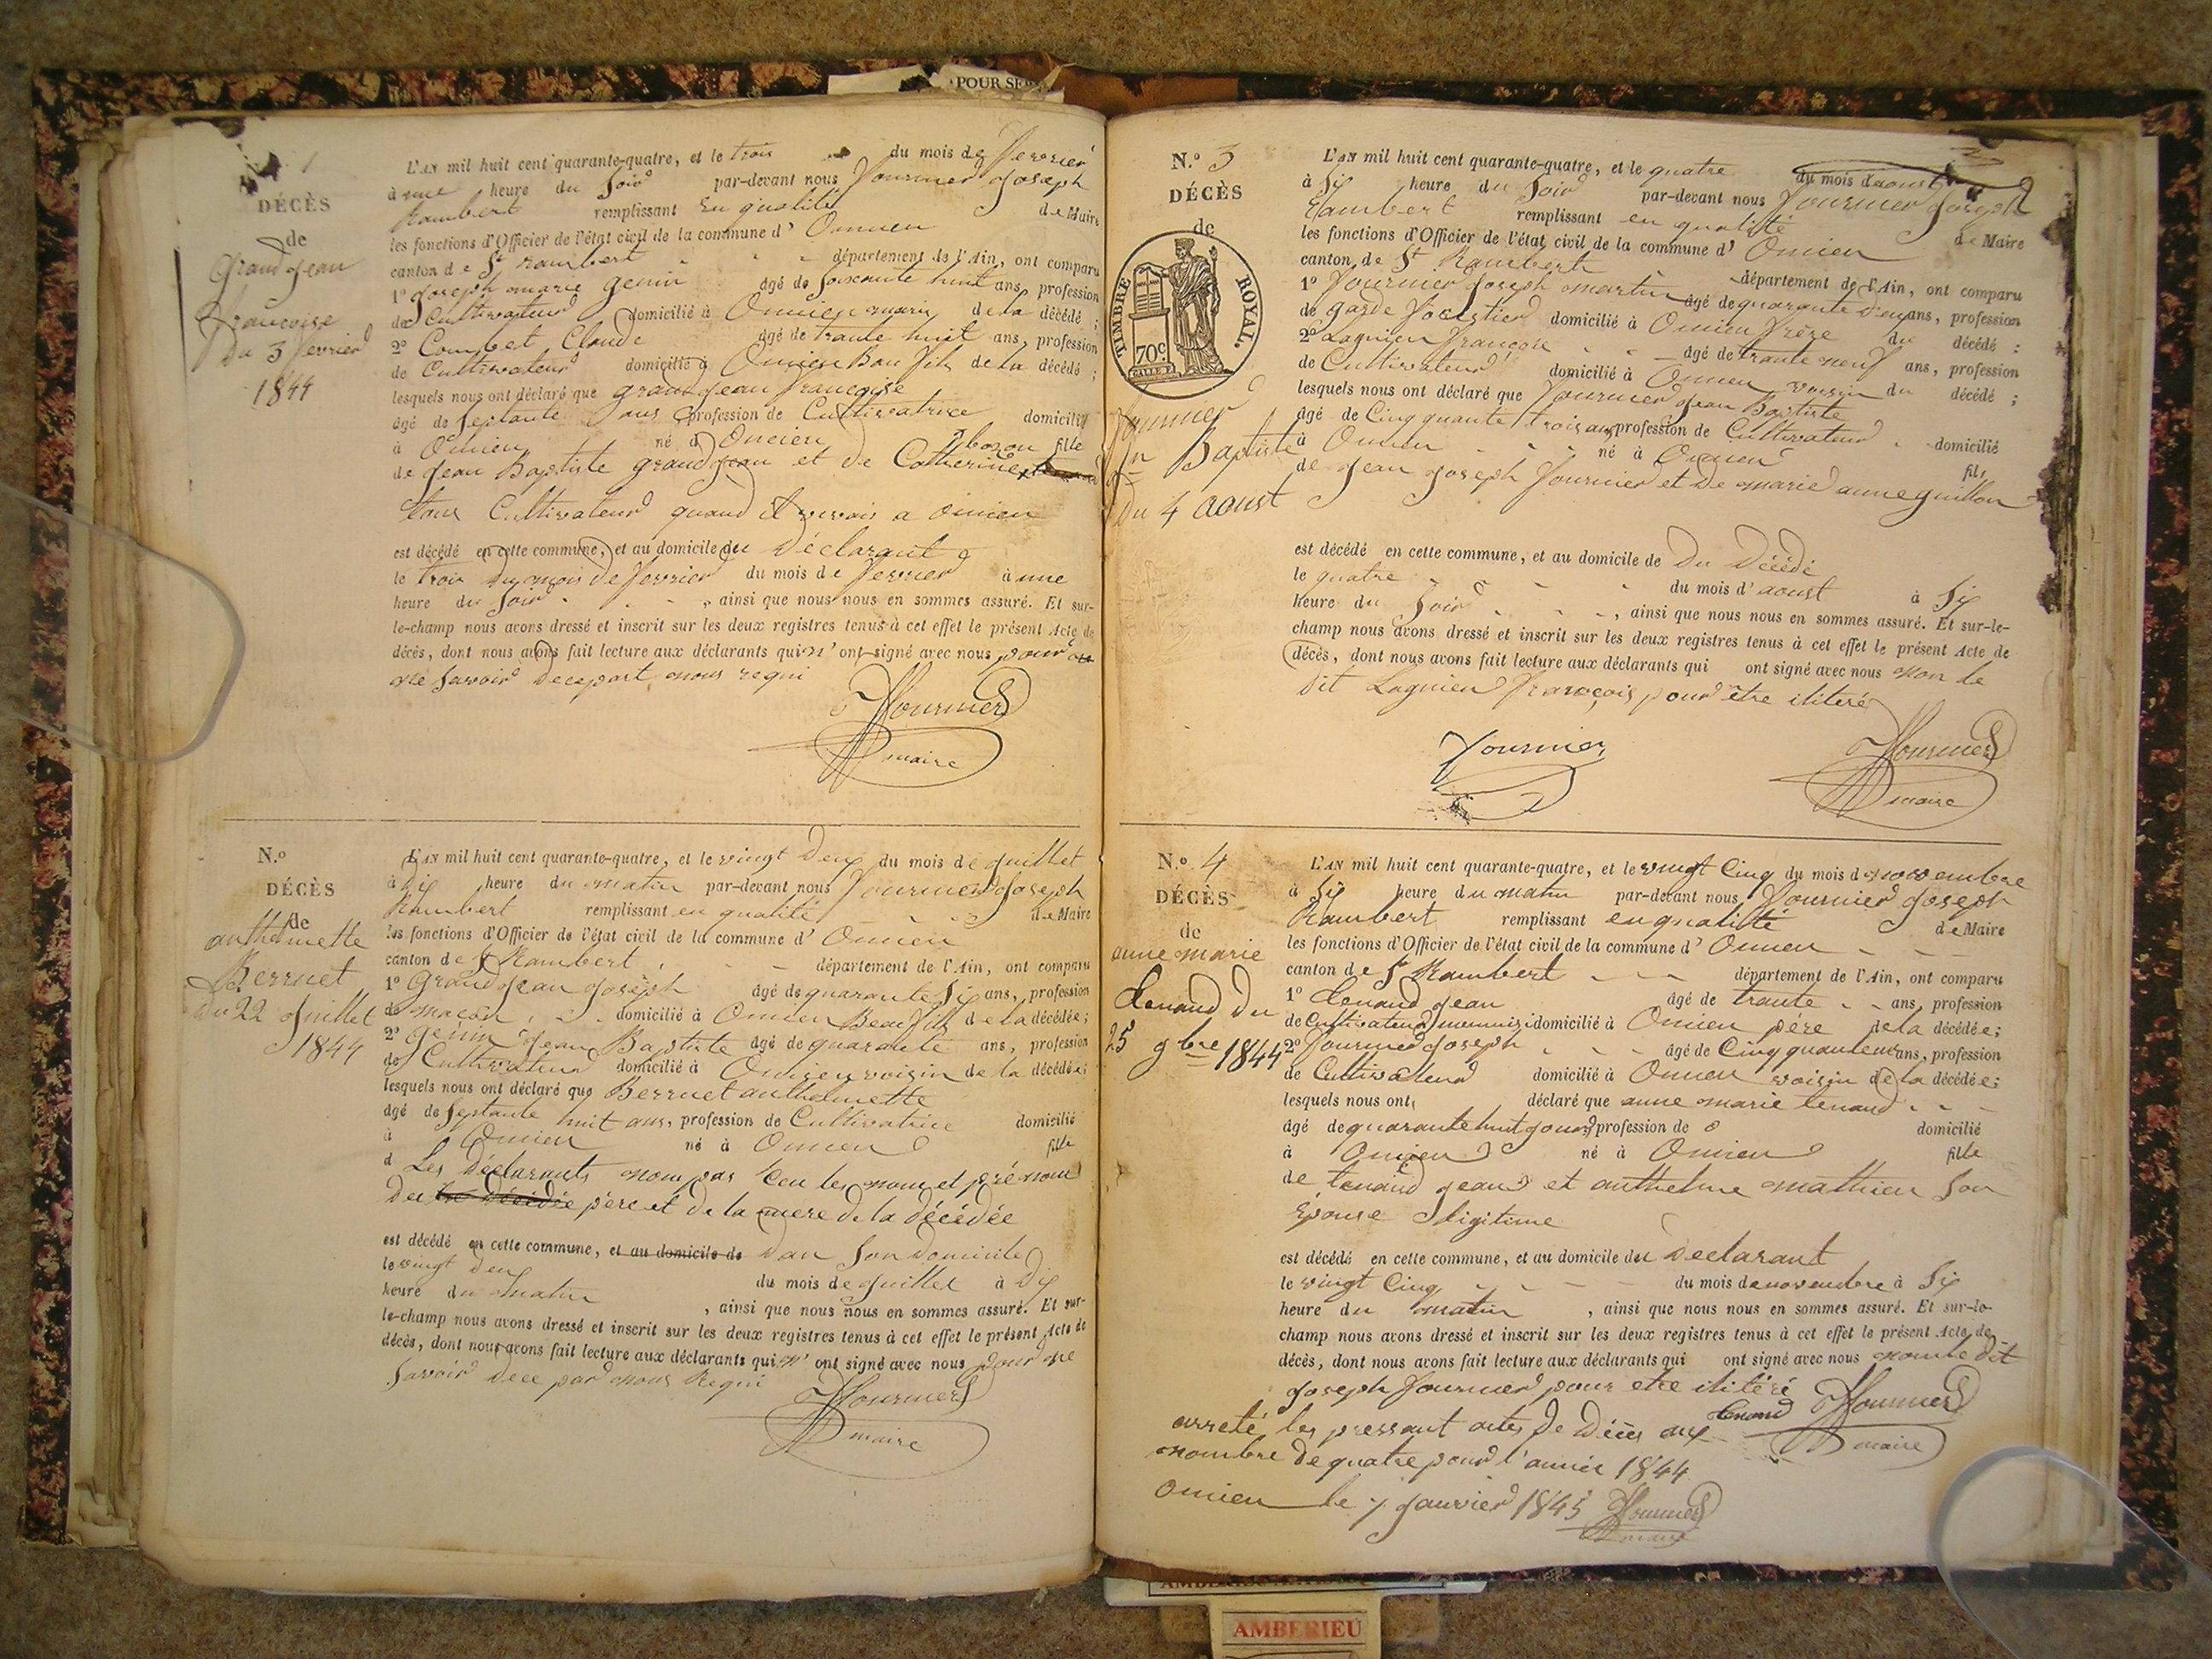 POUR SE
1
DÉCÈS
de
Grand Jean
Francoise
Du 3 fevrier
1844
L'AN mil huit cent quarante-quatre, et le trois du mois de fevrier
à une heure du Soir par-devant nous Fournier Joseph
Rambert remplissant En qualité de Maire
les fonctions d'Officier de l'état civil de la commune d' Oncien
canton de St Rambert département de l'Ain, ont comparu
1º Joseph marie genin âgé de Soixante huit ans, profession
de Cultivateur domicilié à Oncien mari de la décédé ;
2º Combet Claude âgé de trante huit ans, profession
de Cultivateur domicilié à Oncien Bau fils de la décédé ;
lesquels nous ont déclaré que grand jean francoise
âgé de Septante ans profession de Cultivatrice domicilié
à Oncien né à Oncien fille
de Jean Baptiste grand jean et de Catherine
tous Cultivateur quand il vivais a oncien
est décédé en cette commune, et au domicile du Déclarant
le trois Du mois De fevrier du mois de fevrier à une
heure du Soir , ainsi que nous nous en sommes assuré. Et sur-
le-champ nous avons dressé et inscrit sur les deux registres tenus à cet effet le présent Acte de
décès, dont nous avons fait lecture aux déclarants qui n' ont signé avec nous pour
ne Savoir Decepart nous requi
Fournier
maire
N.º
DÉCÈS
de
anthelmette
Berrnet
du 22 Juillet
1844
L'AN mil huit cent quarante-quatre, et le vingt Deux du mois de Juillet
à Dix heure du matin par-devant nous Fournier Joseph
Rambert remplissant en qualité de Maire
les fonctions d'Officier de l'état civil de la commune d' Oncien
canton de St Rambert département de l'Ain, ont comparu
1º Grand Jean Joseph âgé de quarante Six ans, profession
de macon domicilié à Oncien Beau fils de la décédée ;
2º genin Jean Baptiste âgé de quarante ans, profession
de Cultivateur domicilié à Oncien voisin de la décédée ;
lesquels nous ont déclaré que Berrnet anthelmette
âgé de Septante huit ans, profession de Cultivatrice domicilié
à Oncien né à Oncien fille
d Les Déclarants nom pas Ceu les nom et prénom
Deu père et De la mere De la Décédée
est décédé en cette commune, et au domicile de Dan Son Domicile
le vingt Deux du mois de Juillet à Dix
heure du matin , ainsi que nous nous en sommes assuré. Et sur-
le-champ nous avons dressé et inscrit sur les deux registres tenus à cet effet le présent Acte de
décès, dont nous avons fait lecture aux déclarants qui n' ont signé avec nous pour ne
Savoir Dece par nous Requi
Fournier
maire
N.º 3
DÉCÈS
de
TIMBRE ROYAL.
70c
Fournier
Jn Baptiste
Du 4 aoust
L'AN mil huit cent quarante-quatre, et le quatre du mois d'aoust
à Six heure du Soir par-devant nous Fournier Joseph
Rambert remplissant en qualité de Maire
les fonctions d'Officier de l'état civil de la commune d' Oncien
canton de St Rambert département de l'Ain, ont comparu
1º Fournier Joseph martin âgé de quarante Deux ans, profession
de garde forestier domicilié à Oncien frère du décédé ;
2º Lagnien françois âgé de trante neuf ans, profession
de Cultivateur domicilié à Oncien voisin du décédé ;
lesquels nous ont déclaré que Fournier Jean Baptiste
âgé de Cinq quante trois ans profession de Cultivateur domicilié
à Oncien né à Oncien fils
de Jean Joseph Fournier et De marie anne guillon
est décédé en cette commune, et au domicile de Du Décédé
le quatre du mois d'aoust à Six
heure du Soir , ainsi que nous nous en sommes assuré. Et sur-le-
champ nous avons dressé et inscrit sur les deux registres tenus à cet effet le présent Acte de
décès, dont nous avons fait lecture aux déclarants qui ont signé avec nous non le
Dit Lagnien françois pour être ilitéré
Fournier
Fournier
maire
N.º 4
DÉCÈS
de
anne marie
Tenand Du
25 9bre 1844
L'AN mil huit cent quarante-quatre, et le vingt Cinq du mois de novembre
à Six heure du matin par-devant nous Fournier Joseph
Rambert remplissant en qualité de Maire
les fonctions d'Officier de l'état civil de la commune d' Oncien
canton de St Rambert département de l'Ain, ont comparu
1º Tenand Jean âgé de trante ans, profession
de Cultivateur domicilié à Oncien père de la décédée ;
2º Fournier Joseph âgé de Cinq quante ans, profession
de Cultivateur domicilié à Oncien voisin de la décédée ;
lesquels nous ont déclaré que anne marie tenand
âgé de quarante huit Jours profession de domicilié
à Oncien né à Oncien fille
de tenand Jean et anthelme mathieu Son
Epouse Ligitime
est décédé en cette commune, et au domicile deu Declarant
le vingt Cinq du mois de novembre à Six
heure du matin , ainsi que nous nous en sommes assuré. Et sur-le-
champ nous avons dressé et inscrit sur les deux registres tenus à cet effet le présent Acte de
décès, dont nous avons fait lecture aux déclarants qui ont signé avec nous non le dit
Joseph Fournier pour etre ilitéré
Tenand Fournier
maire
arreté les pressant actes De Décès aux
nombre De quatre pour l'année 1844
Oncien le 7 Janvier 1845 Fournier
maire
AMBERIEU